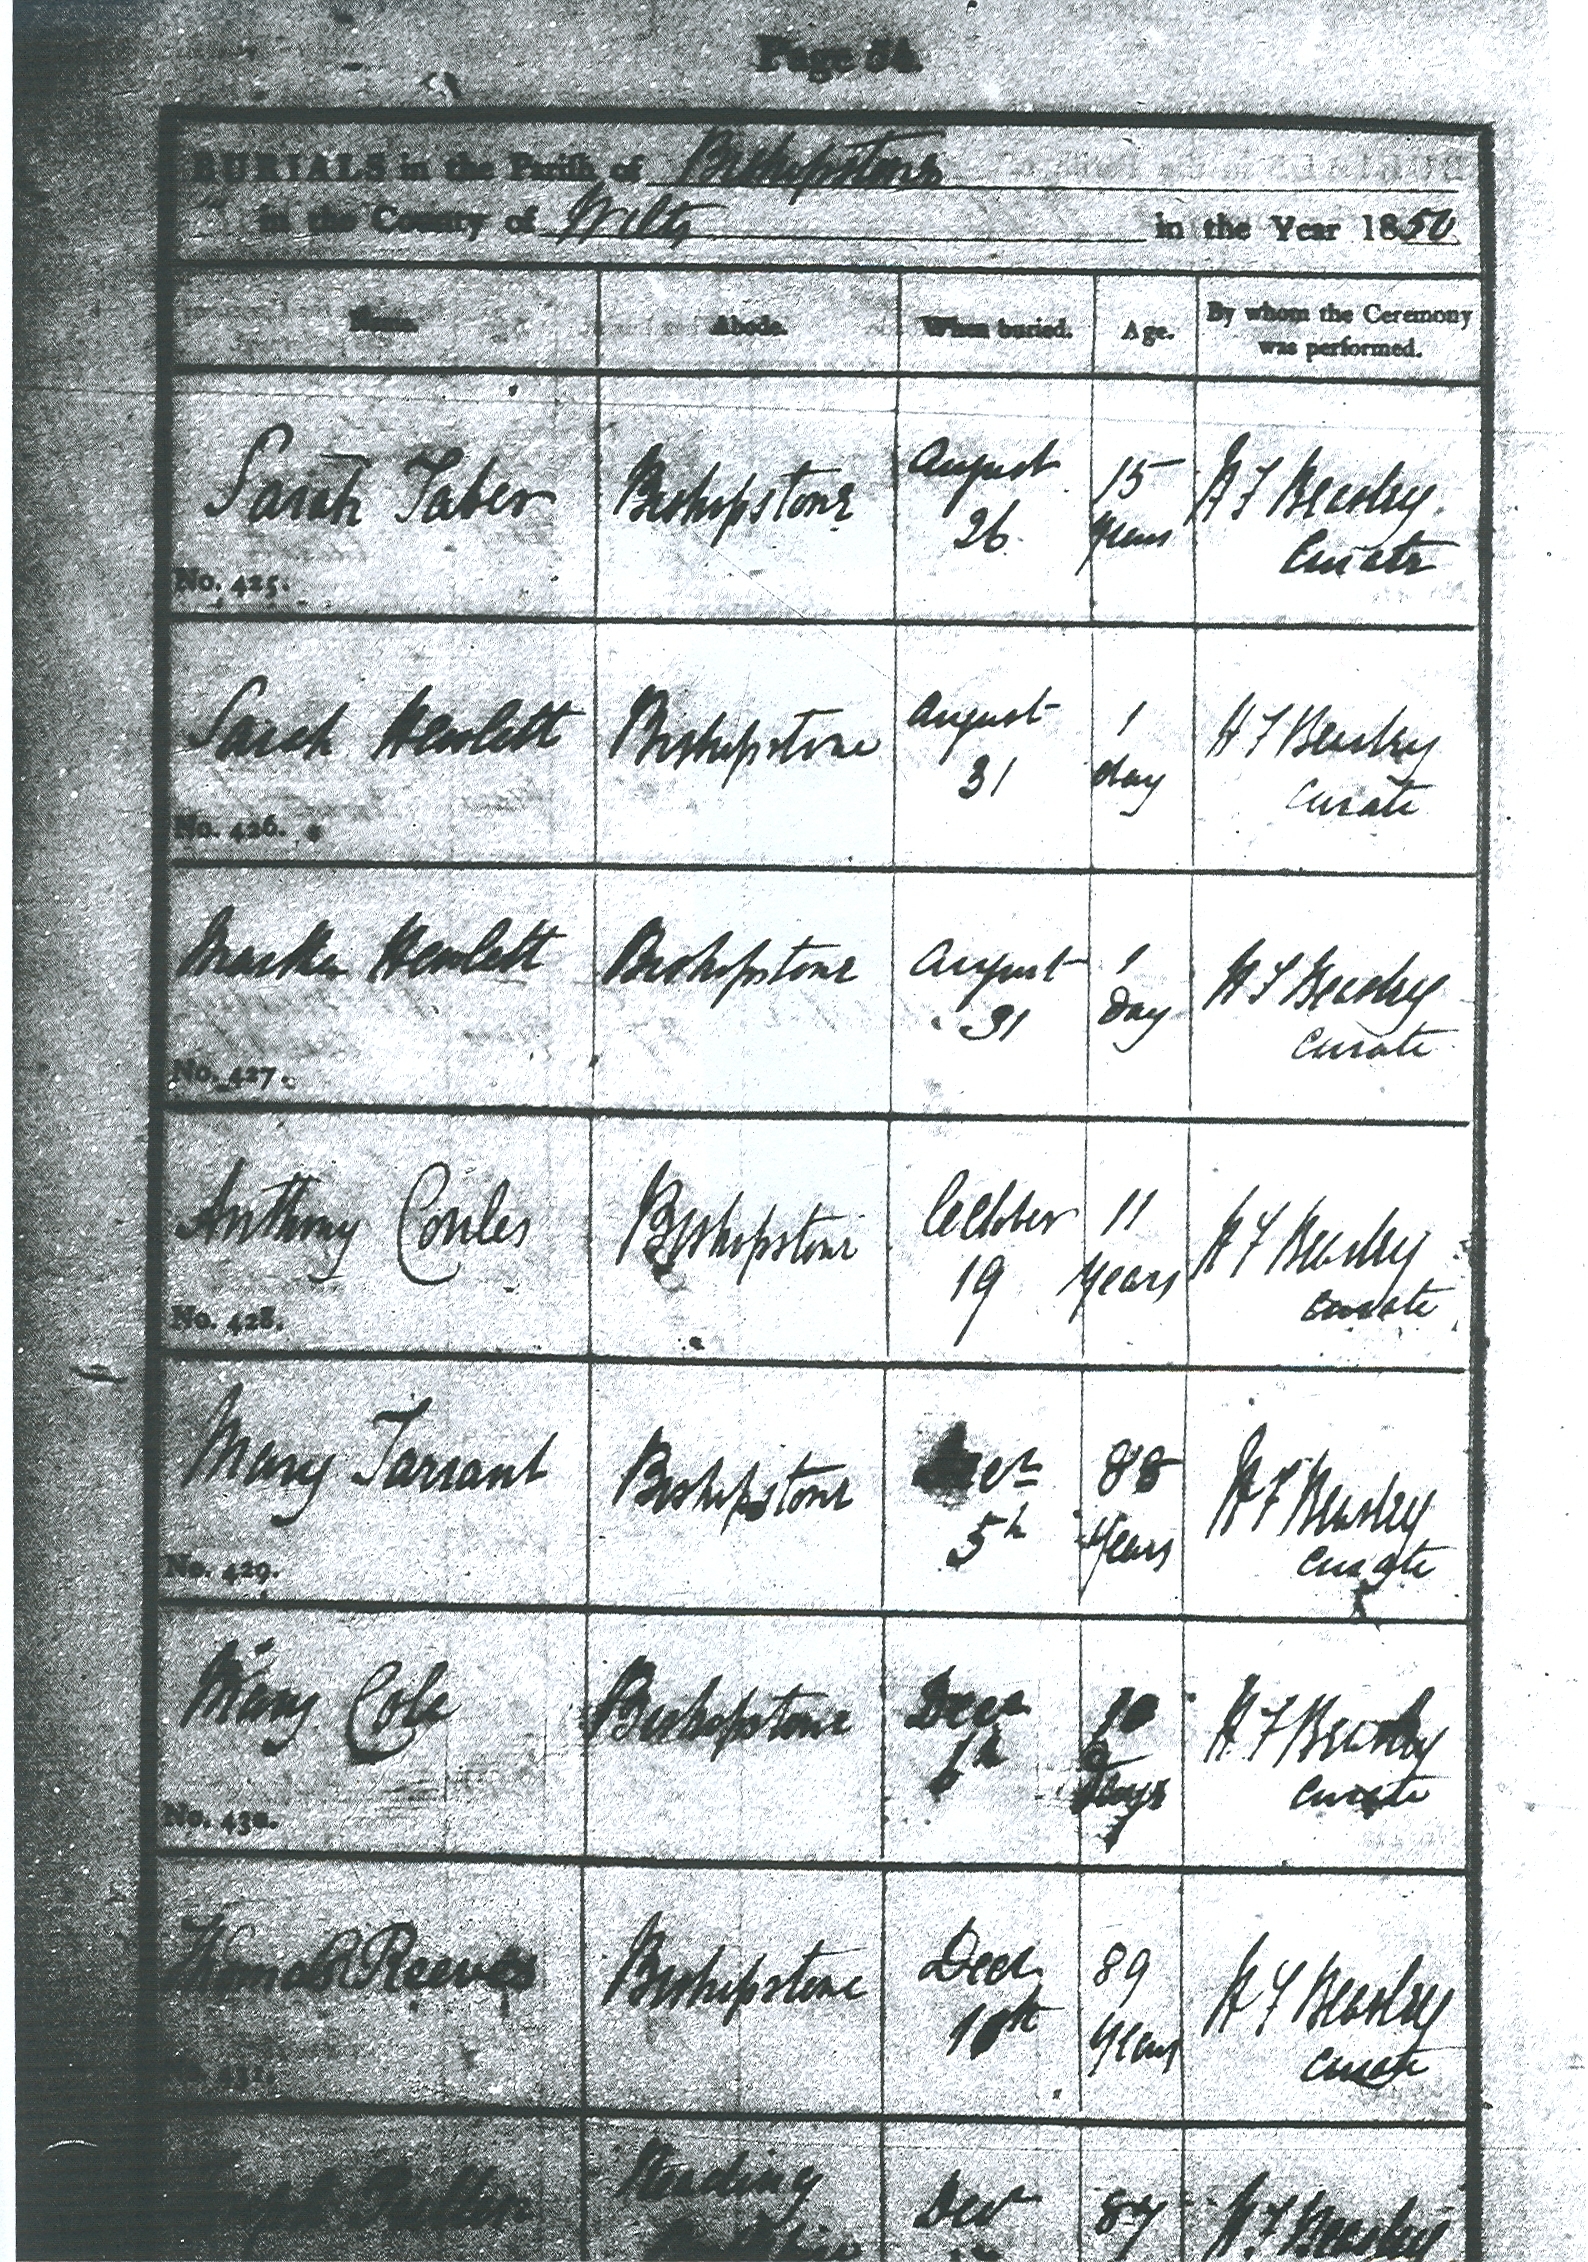 Page 54.
BURIALS in the Parish of Bishopstone
in the County of Wilts in the Year 1850
Name. Abode. When buried. Age. By whom the Ceremony was performed.
Sarah Taber Bishopstone August 26 15 years H F Beasley Curate
No. 425.
Sarah Hewlett Bishopstone August 31 1 day H F Beasley Curate
No. 426.
Martha Hewlett Bishopstone August 31 1 Day H F Beasley Curate
No. 427.
Anthony Coules Bishopstone October 19 11 Years H F Beasley Curate
No. 428.
Mary Tarrant Bishopstone 5th 88 Years H F Beasley Curate
No. 429.
Mary Cole Bishopstone Decr 6th days H F Beasley Curate
No. 430.
Thomas Reeves Bishopstone Decr 89 Years H F Beasley Curate
No. 431.
Reading Dec 84 H F Beasley